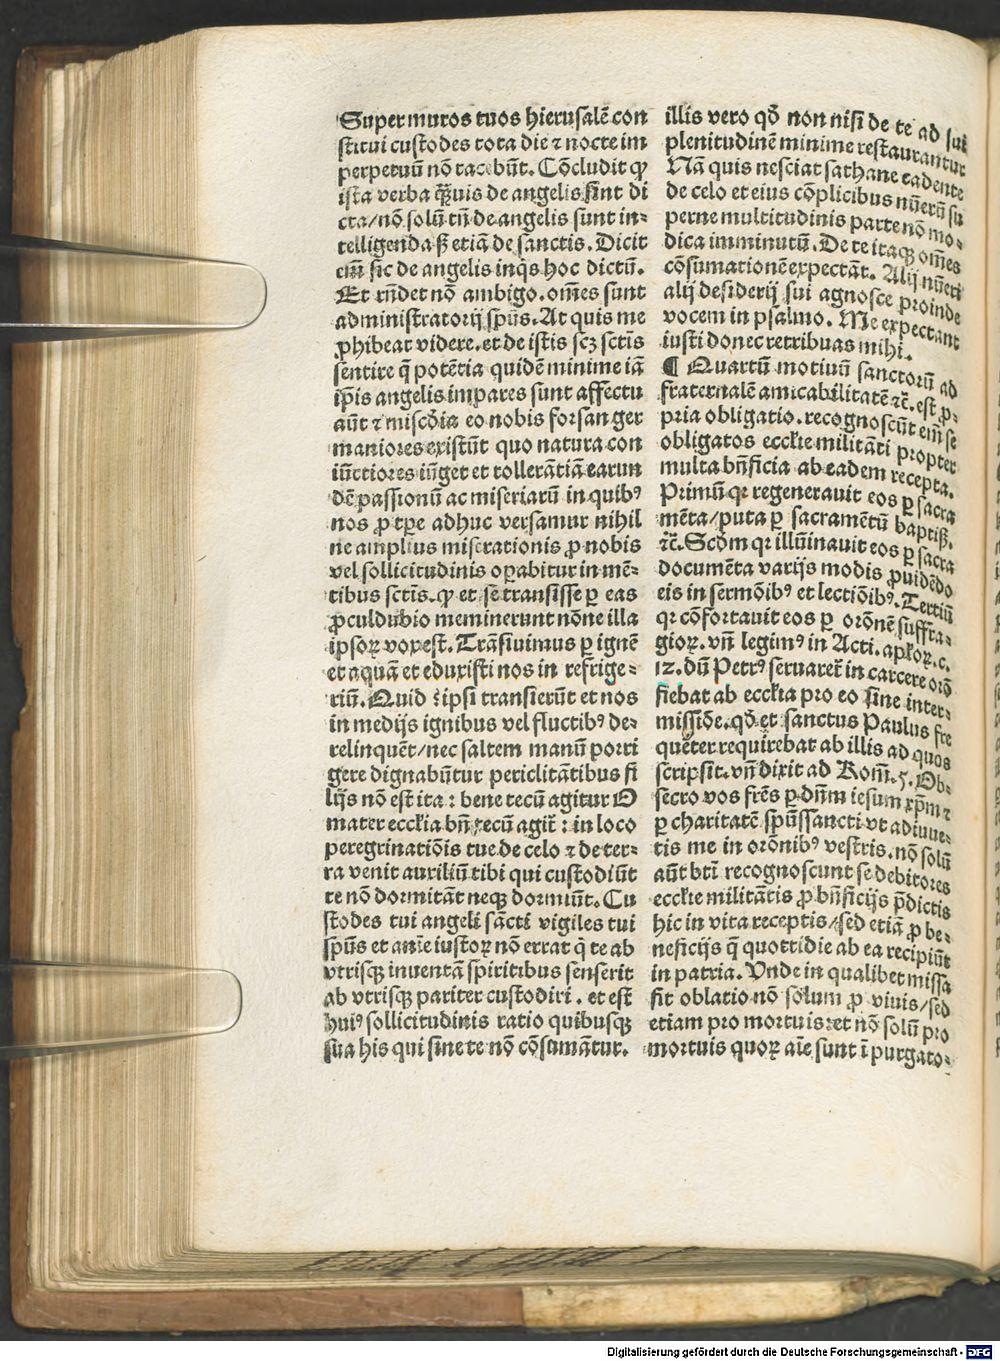 Super muros tuos hierusalē con
stitui custodes tota die ⁊ nocte im
perpetuū nō tacebūt. Cōcludit ꝙ
ista verba q̄uis de angelis sint di
cta/nō solū tn̄ de angelis sunt in-
telligenda sꝫ etiā de sanctis. Dicit
em̄ sic de angelis inq̄s hoc dictū.
Et rn̄det nō ambigo. om̄es sunt
administratorij spūs. At quis me
ꝓhibeat videre. et de istis scꝫ sctīs
sentire q̄ potētia quidē minime iā
ip̄is angelis impares sunt affectu
aūt ⁊ misc̄dia eo nobis forsan ger
maniores existūt quo natura con
iūctiores iūget et tollerātiā earun
dē passionū ac miseriarū in quibꝰ
nos ꝓ tp̄e adhuc versamur nihil
ne amplius miserationis ꝓ nobis
vel sollicitudinis oꝑabitur in mē-
tibus sctīs. ꝙ et se trāsisse ꝑ eas
ꝓculdubio meminerunt nōne illa
ipsoꝝ vox est. Trāsiuimus ꝑ ignē
et aquā et eduxisti nos in refrige-
riū. Quid ⁊ ipsi transierūt et nos
in medijs ignibus vel fluctibꝰ de-
relinquēt/nec saltem manū porri
gere dignabūtur periclitātibus fi
lijs nō est ita: bene tecū agitur O
mater eccl̄ia bn̄ tecū agit̄: in loco
peregrinatiōis tue de celo ⁊ de ter-
ra venit auxiliū tibi qui custodiūt
te nō dormitāt neqꝫ dormiūt. Cu
stodes tui angeli sācti vigiles tui
spūs et aīe iustoꝝ nō errat q̇ te ab
vtrisqꝫ inuentā spiritibus senserit
ab vtrisqꝫ pariter custodiri. et est
huiꝰ sollicitudinis ratio quibusqꝫ
sua his qui sine te nō cōsumātur.
illis vero qd̄ non nisi de te ad sui
plenitudinē minime restaurantur
Nā quis nesciat sathane cadente
de celo et eius cōplicibus nūerū su
perne multitudinis parte nō mo-
dica imminutū. De te itaqꝫ om̄es
cōsumationē expectāt. Alij nūeri
alij desiderij sui agnosce proinde
vocem in psalmo. Me expectant
iusti donec retribuas mihi.
¶ Quartū motiuū sanctorū ad
fraternalē amicabilitatē ⁊c̄. est ꝓ-
pria obligatio. recognoscūt em̄ se
obligatos eccl̄ie militāti propter
multa bn̄ficia ab eadem recepta.
Primū qꝛ regenerauit eos ꝑ sacra
mēta/puta ꝑ sacramētū baptiß.
⁊c̄. Scd̄m qꝛ illūinauit eos ꝑ sacra
documēta varijs modis ꝓuidēdo
eis in sermōibꝰ et lectiōibꝰ. Tertiū
qꝛ cōfortauit eos ꝑ orōnē suffra-
gioꝝ. vn̄ legimꝰ in Acti. apl̄oꝝ. c.
12. dū Petrꝰ seruaret̄ in carcere orō
fiebat ab eccl̄ia pro eo sine inter-
missiōe. qd̄ et sanctus Paulus fre
quēter requirebat ab illis ad quos
scripsit. vn̄ dixit ad Rom̄. 5. Ob-
secro vos fr̄es ꝑ dn̄m iesum xp̄m ⁊
ꝑ charitatē spūssancti vt adiuue-
tis me in orōnibꝰ vestris. nō solū
aūt bt̄i recognoscunt se debitores
eccl̄ie militātis ꝓ bn̄ficijs p̄dictis
hic in vita receptis/sed etiā ꝓ be-
neficijs q̄ quottidie ab ea recipiūt
in patria. Vnde in qualibet missa
fit oblatio nō solum ꝓ viuis/sed
etiam pro mortuis: et nō solū pro
mortuis quoꝝ aīe sunt ī purgato-
Digitalisierung gefördert durch die Deutsche Forschungsgemeinschaft - DFG